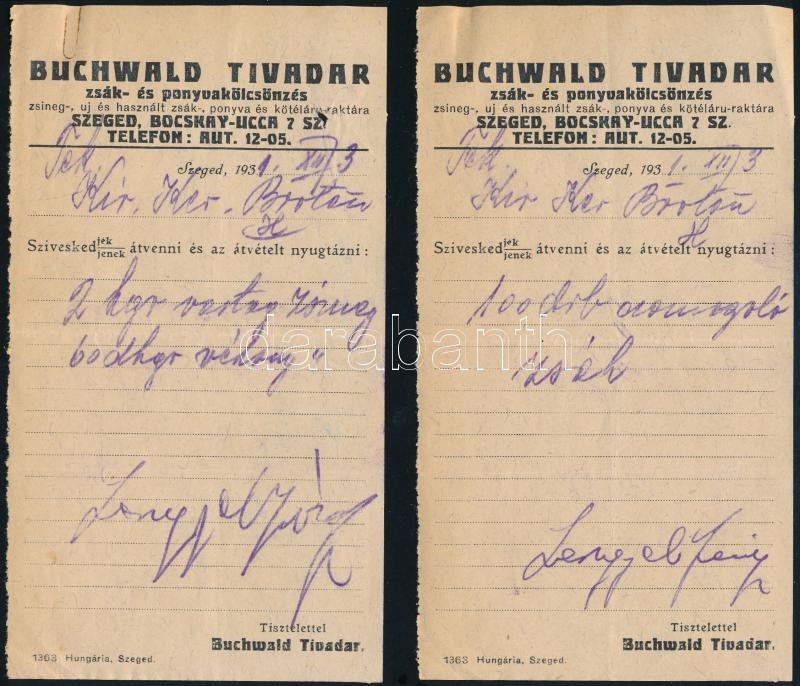 BUCHWALD TIVADAR
zsák- és ponyvakölcsönzés
zsineg-, uj és használt zsák-, ponyva és kötéláru-raktára
SZEGED, BOCSKAY-UCCA 7 SZ.
TELEFON: AUT. 12-05.
Tek.
Szeged, 1931. XII/3
Kir. Ker.
Szivesked jek/jenek átvenni és az átvételt nyugtázni:
2 kgr vastag
60 dkgr vékony "
Lengyel József
Tisztelettel
Buchwald Tivadar.
1363 Hungária, Szeged.
BUCHWALD TIVADAR
zsák- és ponyvakölcsönzés
zsineg-, uj és használt zsák-, ponyva és kötéláru-raktára
SZEGED, BOCSKAY-UCCA 7 SZ.
TELEFON: AUT. 12-05.
Tek.
Szeged, 1931. XII/3
Kir Ker
Szivesked jek/jenek átvenni és az átvételt nyugtázni:
100 drb csomagoló
zsák
Lengyel
Tisztelettel
Buchwald Tivadar.
1363 Hungária, Szeged.
darabanth